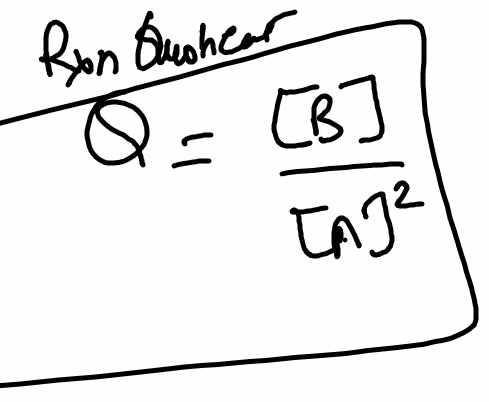 Rxn Quotient
Q = [B] / [A]²